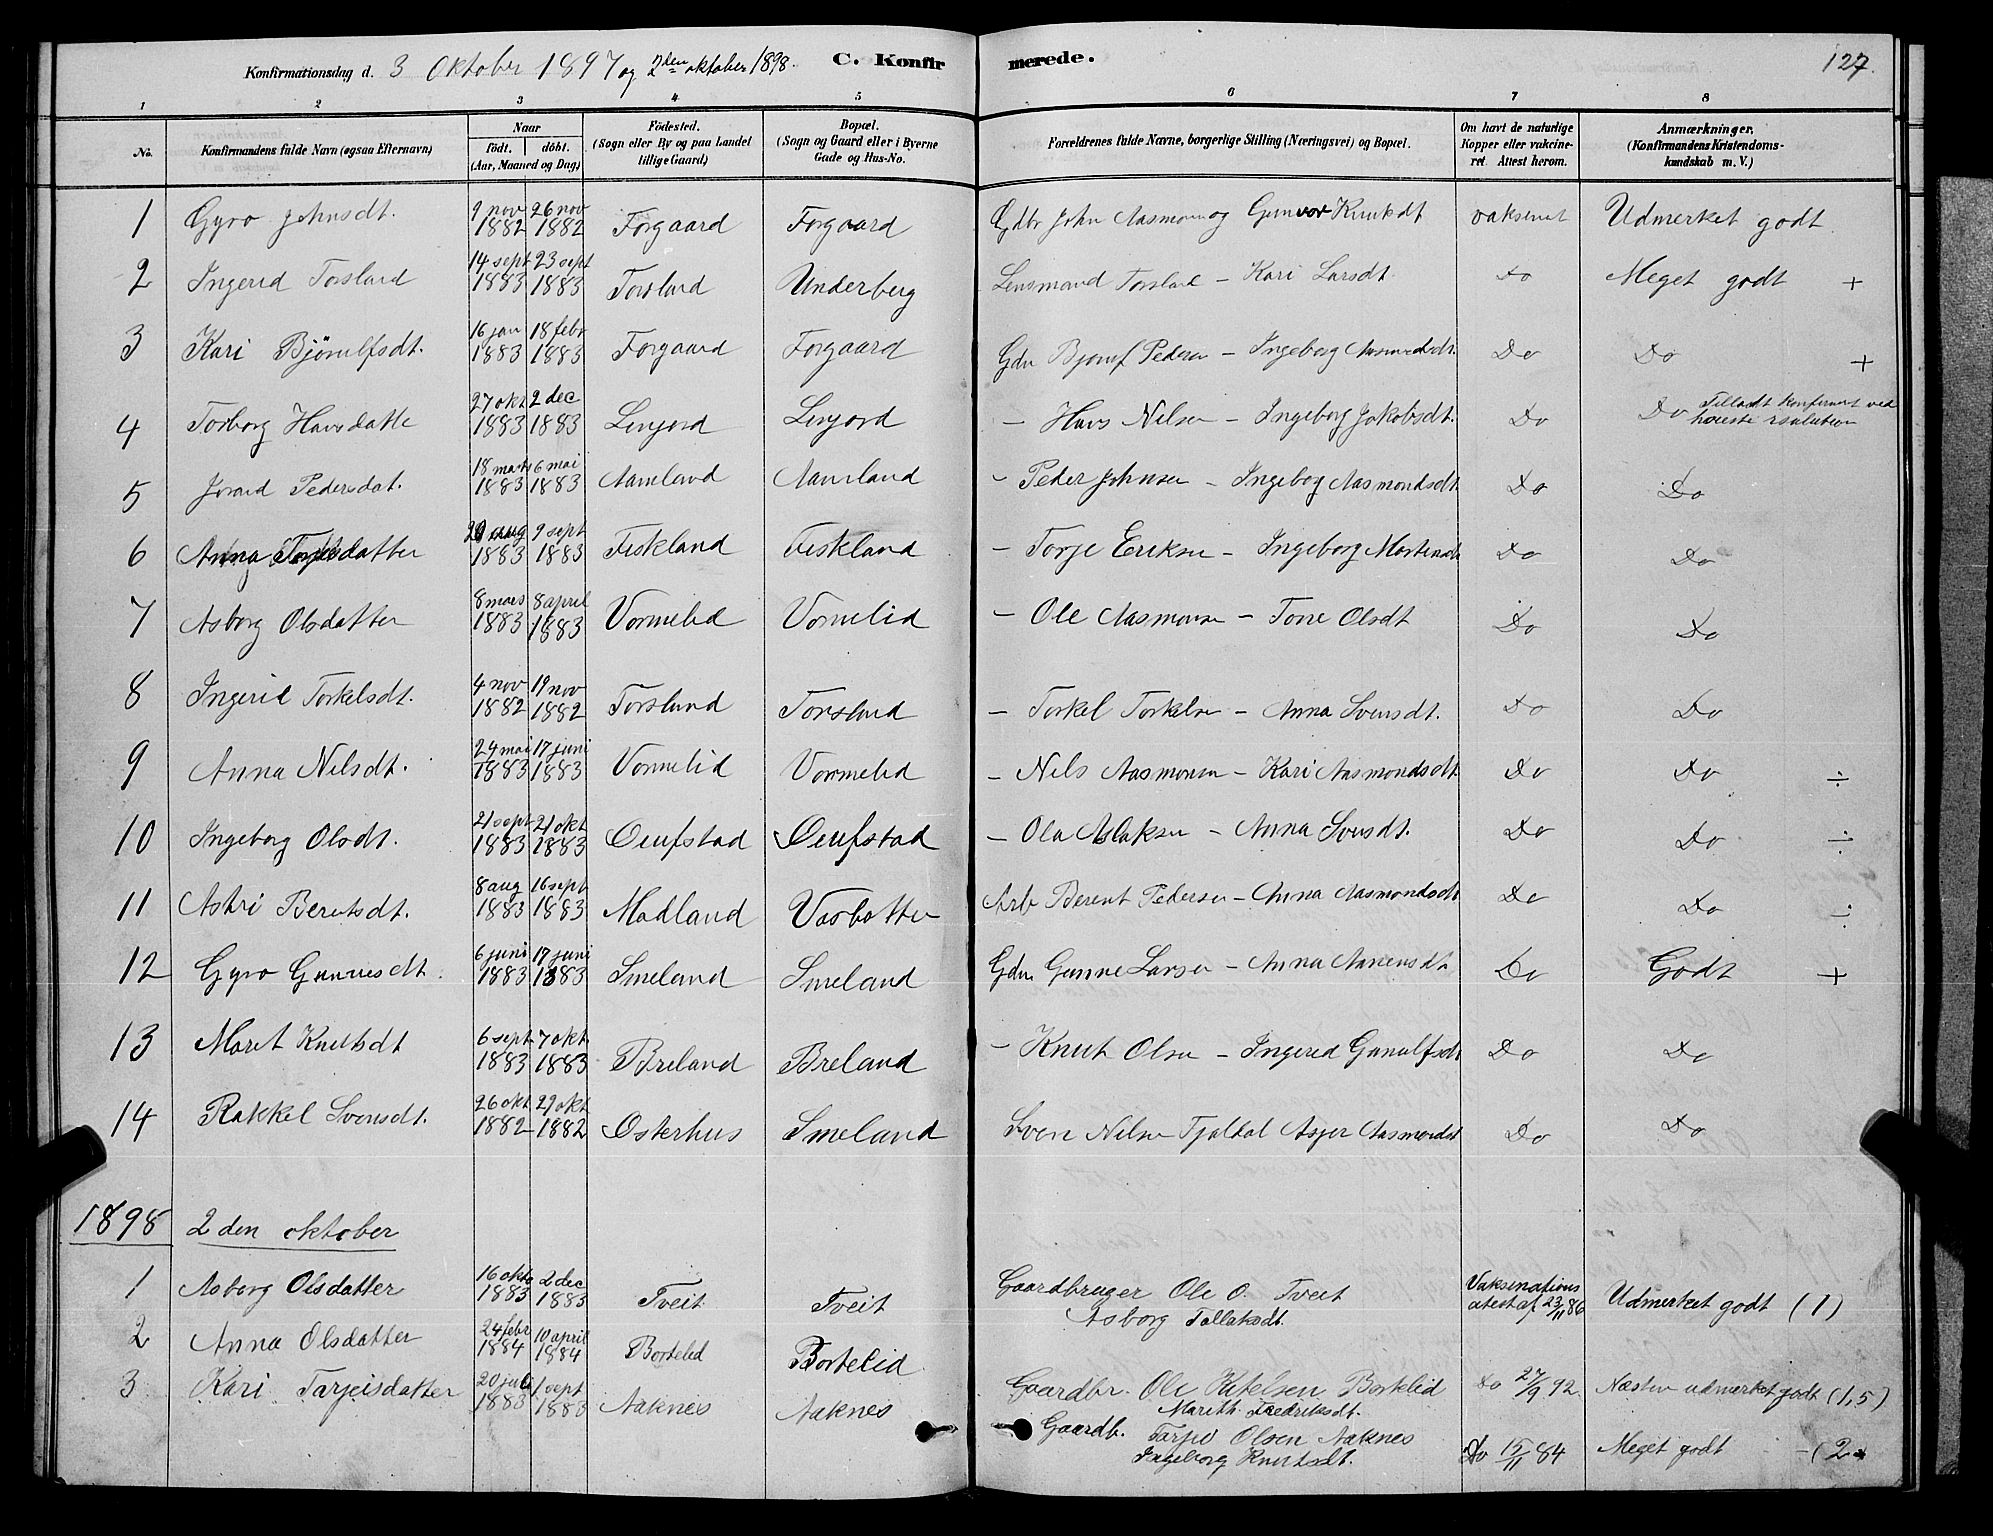 Konfirmationsdag d. 3 Oktober 1897 og 2den oktober 1898. C. Konfirmerede. 127.
1 2 3 4 5 6 7 8
No. Konfirmandens fulde Navn (ogsaa Efternavn) Naar födt. döbt. (Aar, Maaned og Dag) Födested. (Sogn eller By og paa Landet tillige Gaard) Bopæl. (Sogn og Gaard eller i Byerne Gade og Hus-No. Forældrenes fulde Navne, borgerlige Stilling (Næringsvei) og Bopæl. Om havt de naturlige Kopper eller vakcineret. Attest herom. Anmærkninger. (Konfirmandens Kristendomskundskab m. V.)
1 Gyro Johnsdt. 9 nov 1882 26 nov 1882 Forgaard Forgaard Gdbr John Aasmon og Gunvor Knutsdt vaksinat Udmerket godt
2 Ingerid Torsland 14 sept 1883 23 sept 1883 Torsland Underberg Lensmand Torsland - Kari Larsdt. Do Meget godt +
3 Kari Bjönulfsdt. 16 jan 1883 18 febr 1883 Forgaard Forgaard Gdn Pedersen - Ingeborg Aasmundsdt. Do Do +
4 Torborg Hansdatte 27 okt 1883 2 dec 1883 Lenjord Lenjord - Hans Nilsen - Ingeborg Jakobsdt. Do Do Tilladt konfirmert ved resolution
5 Pedersdat. 18 mars 1883 6 mai 1883 Aamland Aamland - Peder Johnsen - Ingeborg Aasmondsdt. Do Do
6 Anna Torjesdatter 20 aug 1883 9 sept 1883 Fiskland Fiskland - Torje Eriksen - Ingeborg Mortensdt Do Do
7 Asborg Olsdatter 8 mars 1883 8 april 1883 Vormelid Vormelid - Ole Aasmonsen - Tone Olsdt Do Do
8 Ingerid Torkelsdt. 4 nov 1882 19 nov 1882 Torsland Torsland - Torkel Torkelsen - Anna Svensdt. Do Do
9 Anna Nilsdt. 24 mai 1883 17 juni 1883 Vormelid Vormelid - Nils Aasmonsen - Kari Aasmondsdt Do Do ÷
10 Ingeborg Olsdt. 21 sept 1883 21 okt 1883 Øeufstad Øeufstad - Ola Aslaksen - Anna Svensdt. Do Do ÷
11 Astri Berntsdt. 8 aug 1883 16 sept 1883 Modland Vasbotten Arb Berent Pedersen - Anna Aasmondsdt Do Do ÷
12 Gyro Gunnesdt. 6 juni 1883 17 juni 1883 Smeland Smeland Gdn Gunne Larsen - Anna Aanensdt Do Godt +
13 Maret Knutsdt 6 sept 1883 7 okt 1883 Breland Breland - Knut Olsen - Ingerid Gunulfsdt Do Do
14 Rakkel Svensdt. 26 okt 1882 29 okt 1882 Osterhus Smeland Sven Nilsen Asper Aasmondsdt Do Do
1898 2 den oktober
1 Asborg Olsdatter 16 okto 1883 2 dec 1883 Tveit Tveit Gaardbruger Ole O. Tveit Vaksinations atest af 23/11 86 Udmerket godt (1)
Asborg Tallaksdt.
2 Anna Olsdatter 24 febr 1884 10 april 1884 Bortelid Bortelid Gaardbr. Ole Kitelsen Bortelid Do 27/9 92. Næsten udmerket godt (1,5)
Marith Fredriksdt.
3 Kari Tarjeisdatter 20 juli 1883 1 sept 1883 Aaknes Aaknes Gaardb. Tarjei Olsen Aaknes Do 15/11 84 Meget godt - (2
Ingeborg Knutsdt.